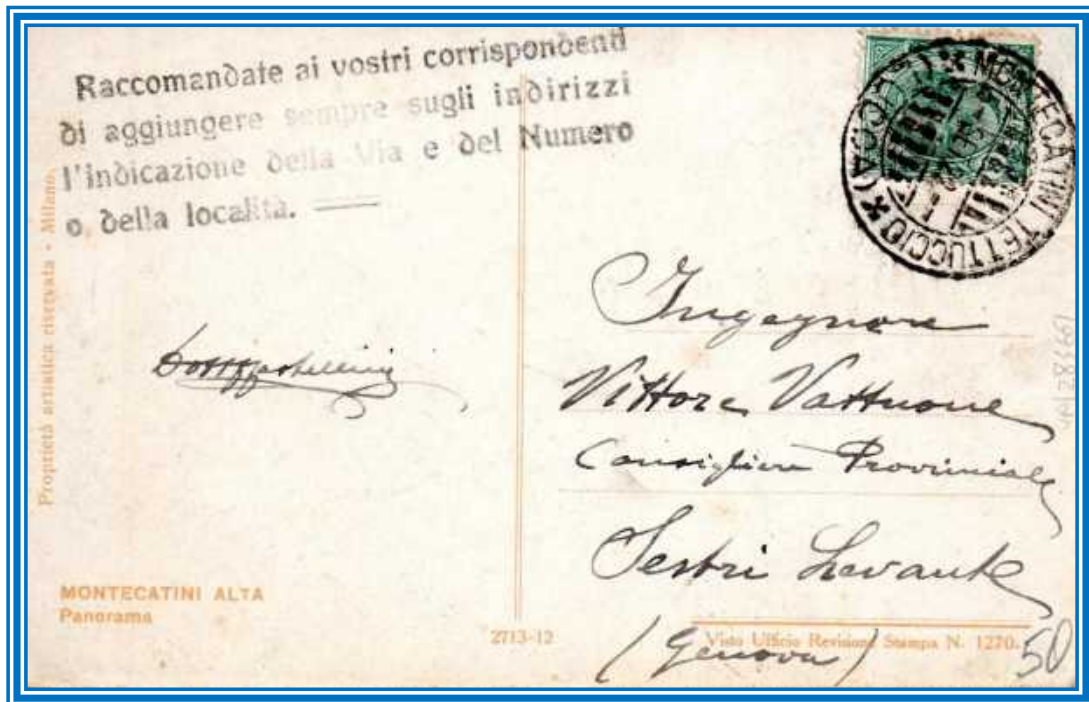 Raccomandate ai vostri corrispondenti
di aggiungere sempre sugli indirizzi
l'indicazione della Via e del Numero
o della località.
MONTECATINI TETTUCCIO (LUCCA)
Proprietà artistica riservata - Milano.
Ingegnere
Vittore Vattuone
Consigliere Provinciale
Sestri Levante
(Genova)
MONTECATINI ALTA
Panorama
2713-12
Visto Ufficio Revisione Stampa N. 1270.
50